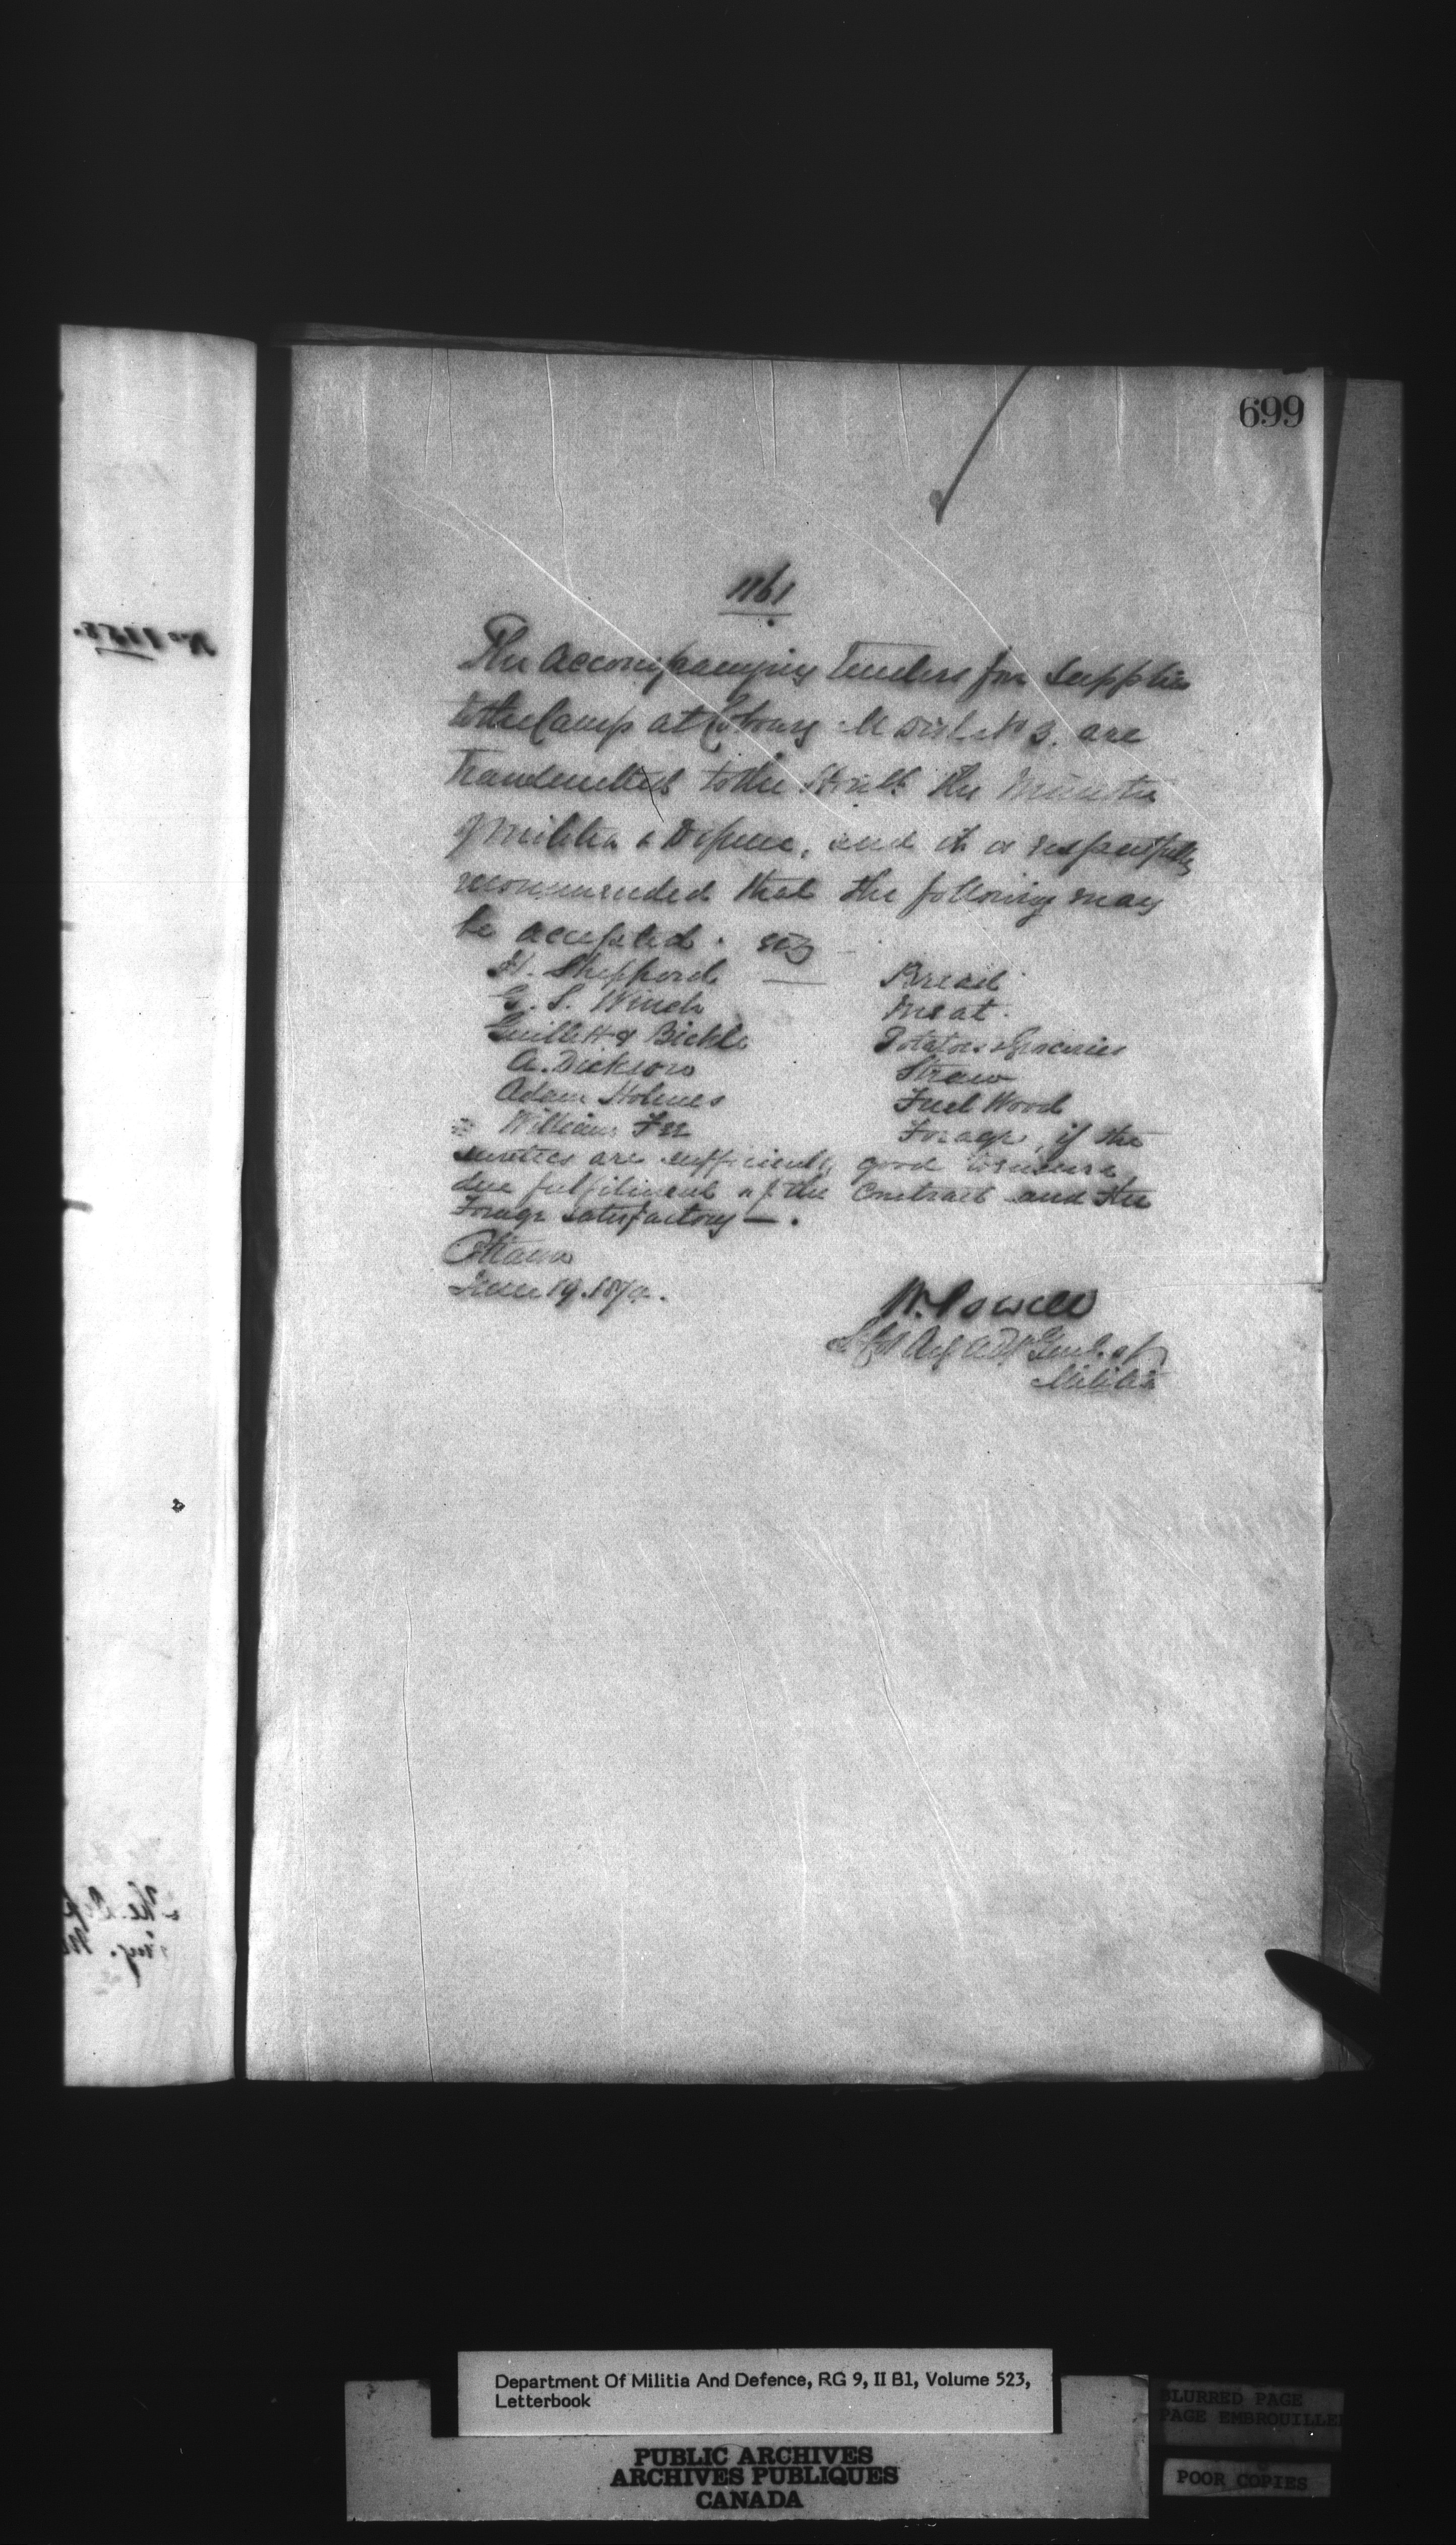 699
1161
The accompanying Tenders for Supplies
to the Camp at Cobourg M Dist No 3. are
transmitted to the Honble the Minister
of Militia & Defence, and it is respectfully
recommended that the following may
be accepted. viz
H. Shepperd — Bread
G. S. Winch Meat.
Guillett & Bickle Potatoes & Groceries
A. Dickson Straw
Adam Holmes Fuel Wood
William Fee Forage, if the
sureties are sufficiently good to ensure
due fulfilment of the Contract and the
Forage satisfactory —.
Ottawa
June 19. 187
W. Powell
Lt Col Actg Adjt Genl. of
Militia
Department Of Militia And Defence, RG 9, II B1, Volume 523,
Letterbook
PUBLIC ARCHIVES
ARCHIVES PUBLIQUES
CANADA
BLURRED PAGE
PAGE EMBROUILLEE
POOR COPIES